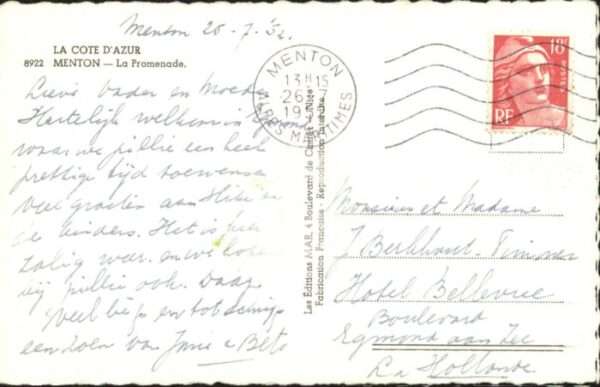 Menton 26-7-'52.
LA COTE D'AZUR
8922 MENTON — La Promenade.
Lieve Vader en Moeder
Hartelijk welkom in
waar we jullie een heel
prettige tijd toewensen
veel groeten aan en
de kinders. Het is hier
zalig war. en we hopen
bij jullie ook. Daag
veel liefs en tot
een zoen van en Bets
MENTON
13H15
26-7
19
ALPES MARITIMES
18F
POSTES
RF
Les Éditions MAR, 4 Boulevard de Cessole - Nice
Fabrication Française - Reproduction Interdite
Monsieur et Madame
J Berkhout-Timmer
Hotel Bellevue
Boulevard
Egmond aan Zee
La Hollande